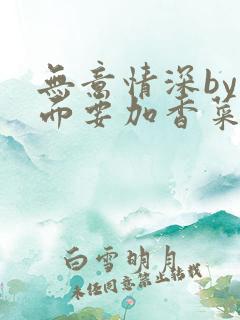 無意情深by
而要加香菜
白雪明月
未经同意禁止转载